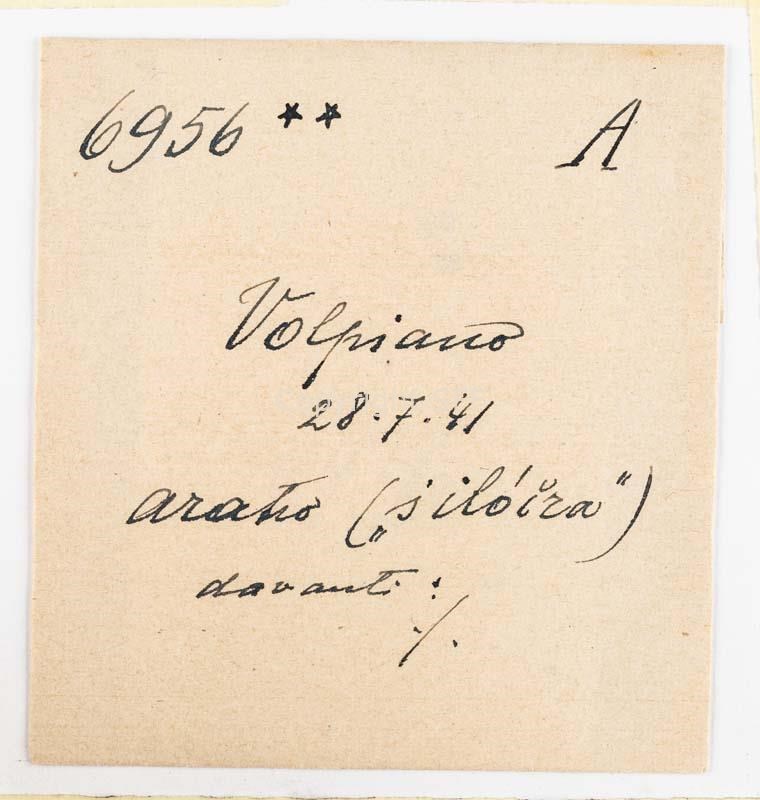 6956 ** A
Volpiano
28.7.41
aratro („śilóĭra“)
davanti :
./.